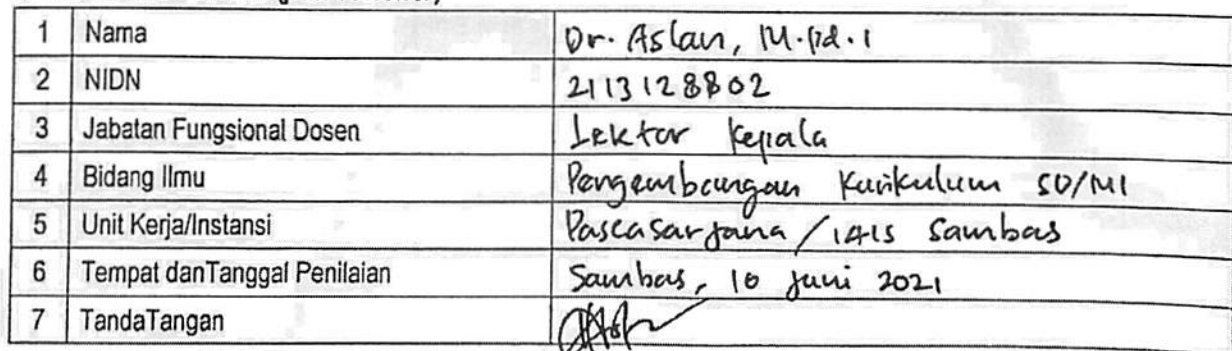 1 Nama Dr. Aslan, M.Pd.I
2 NIDN 2113128802
3 Jabatan Fungsional Dosen Lektor Kepala
4 Bidang Ilmu Pengembangan Kurikulum SD/MI
5 Unit Kerja/Instansi Pascasarjana / IAIS Sambas
6 Tempat danTanggal Penilaian Sambas, 10 Juni 2021
7 TandaTangan